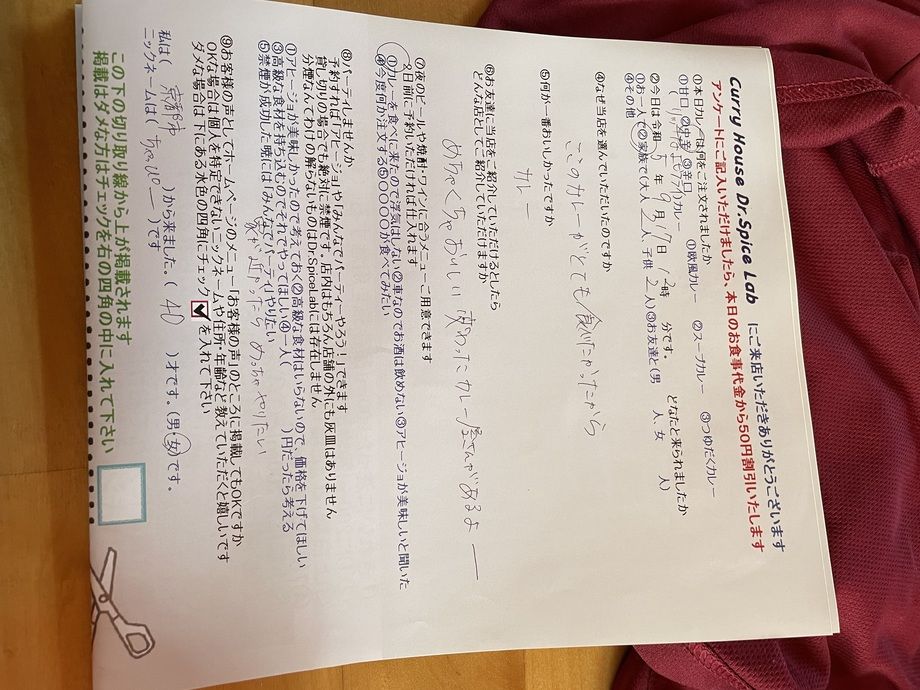 Curry House Dr.Spice Lab にご来店いただきありがとうございます
アンケートにご記入いただけましたら、本日のお食事代金から50円割引いたします
①本日カレーは何をご注文されましたか ①欧風カレー ②スープカレー ③つゆだくカレー
①甘口 ②中辛 ③辛口
②今日は令和 5 年 9月 17日 12時 分です。 どなたと来られましたか
①お一人で ②ご家族で(大人 2 人、子供 2 人) ③お友達と(男 人、女 人)
④その他
④なぜ当店を選んでいただいたのですか
ここのカレーがとても食べたかったから
⑤何が一番おいしかったですか
カレー
⑥お友達に当店をご紹介していただけるとしたら
どんな店としてご紹介していただけますか
めちゃくちゃおいしい変わったカレー屋さんがあるよー
⑦夜のビールや焼酎・ワインに合うメニューご用意できます
2日前に予約いただければ仕入れます
①カレーを食べに来たので浮気はしない②車なのでお酒は飲めない③アヒージョが美味しいと聞いた
④今度何か注文する⑤○○○○が食べてみたい
⑧パーティしませんか
予約すればアヒージョや「みんなでパーティーやろう!」できます
貸し切りの場合でも絶対に禁煙です。店内はもちろん店舗の外にも灰皿はありません
分煙なんてわけの解らないものはDr.SpiceLabには存在しません
①アヒージョが美味しかったので考えておく②高級な食材はいらないので、価格を下げてほしい
③高級な食材を持ち込むのでそれでやってほしい④一人( )円だったら考える
⑤禁煙が成功した暁にはみんなでパーティやりたい
家が近かったらめっちゃやりたい
⑨お客様の声としてホームページのメニュー「お客様の声」のところに掲載してもOKですか
OKな場合は個人を特定できないニックネームや住所・年齢など教えていただくと嬉しいです
ダメな場合は下にある水色の四角にチェック を入れて下さい
私は( 京都市 )から来ました。( 40 )才です。(男・女)です。
ニックネームは( ちゃぴー )です
この下の切り取り線から上が掲載されます
掲載はダメな方はチェックを右の四角の中に入れて下さい